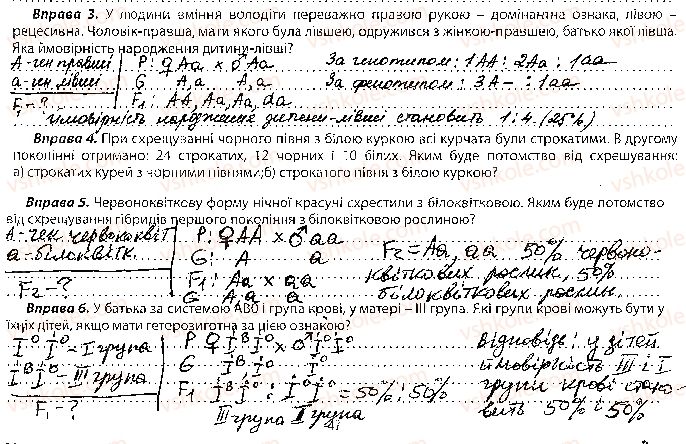 Вправа 3. У людини вміння володіти переважно правою рукою – домінантна ознака, лівою –
рецесивна. Чоловік-правша, мати якого була лівшею, одружився з жінкою-правшею, батько якої лівша.
Яка ймовірність народження дитини-лівші?
А-ген правші P: ♀Аа x ♂Аа За генотипом: 1АА : 2Аа : 1аа
а-ген лівші G А, а А, а За фенотипом: 3А- : 1аа
F₁-? F₁: АА, Аа, Аа, аа
ймовірність народження дитини-лівші становить 1:4 (25%)
Вправа 4. При схрещуванні чорного півня з білою куркою всі курчата були строкатими. В другому
поколінні отримано: 24 строкатих, 12 чорних і 10 білих. Яким буде потомство від схрещування:
а) строкатих курей з чорними півнями;б) строкатого півня з білою куркою?
Вправа 5. Червоноквіткову форму нічної красуні схрестили з білоквітковою. Яким буде потомство
від схрещування гібридів першого покоління з білоквітковою рослиною?
А-ген червоноквіт P: ♀АА x ♂аа F₂ = Аа, аа 50% червоно-
а-білоквітк. G: А а квіткових рослин, 50%
F₂-? F₁: Аа x аа білоквіткових рослин.
G А, а а
Вправа 6. У батька за системою АВ0 і група крові, у матері – III група. Які групи крові можуть бути у
їхніх дітей, якщо мати гетерозиготна за цією ознакою?
I⁰I⁰-I група P: ♀IᴮI⁰ x ♂I⁰I⁰ Відповідь: у дітей
IᴮI⁰-III група G Iᴮ I⁰ I⁰ ймовірність III і I
F₁-? F₁ IᴮI⁰ : I⁰I⁰ = 50% : 50% групи крові стано-
III група I група вить 50% : 50%